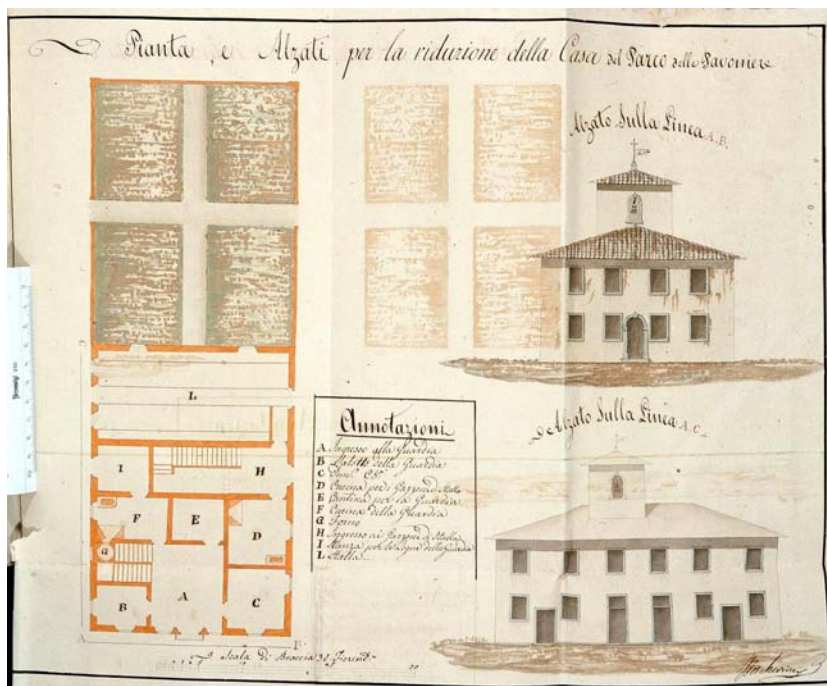 Pianta, e Alzati per la riduzione della Casa del Parco delle Pavoniere
Alzato Sulla Linea A.B.
L
I
H
F
E
D
G
B
A
C
A
B
Annotazioni
A Ingresso alla Guardia
B Salotto della Guardia
C
D Cucina per i Garzoni di Stalla
E Cantina per la Guardia
F Cucina della Guardia
G Forno
H Ingresso ai Garzoni di Stalla
I Stanza per le Legne della Guardia
L Stalla
Alzato Sulla Linea A.C.
Scala di Braccia 30 Fiorent.